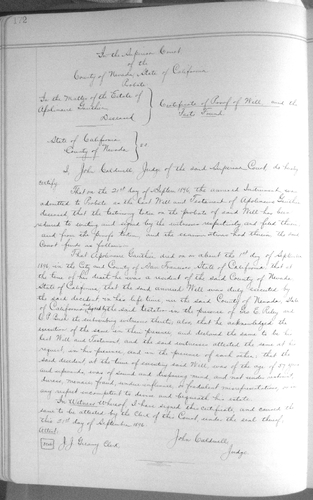 172
In the Superior Court
of the
County of Nevada, State of California
Probate
In the Matter of the Estate of
Deceased
Certificate of Proof of Will and the
Facts Found
State of California
County of Nevada
ss
I, John Caldwell, Judge of the said Superior Court do hereby
certify
That on the 21st day of September 1896, the annexed Instrument was
admitted to Probate as the Last Will and Testament of
deceased that the testimony taken on the probate of said Will has been
reduced to writing and signed by the witnesses respectively and filed therein
and from the proofs taken and the examinations had therein, the said
Court finds as follows:
That died on or about the 1st day of
1896 in the City and County of San Francisco, State of California; that at
the time of his death he was a resident of the said County of Nevada
State of California, that the said annexed Will was duly executed by
the said decedent in his life time, in the said County of Nevada, State
of California by said testator in the presence of
the subscribing witnesses thereto; also that he acknowledged the
execution of the same in their presence, and declared the same to be his
last Will and Testament and the said witnesses attested the same at his
request, in his presence and in the presence of each other; that the
said decedent at the time of executing said Will, was of the age of years
and upwards was of sound and disposing mind and not under restraint
duress, menace, fraud, undue influence, or fraudulent misrepresentation, nor in
any respect incompetent to devise and bequeath his estate.
In Witness Whereof I have signed this certificate, and caused the
same to be attested by the Clerk of this Court under the seal thereof
this 21st day of September 1896
Attest:
John Caldwell
Clerk
Judge